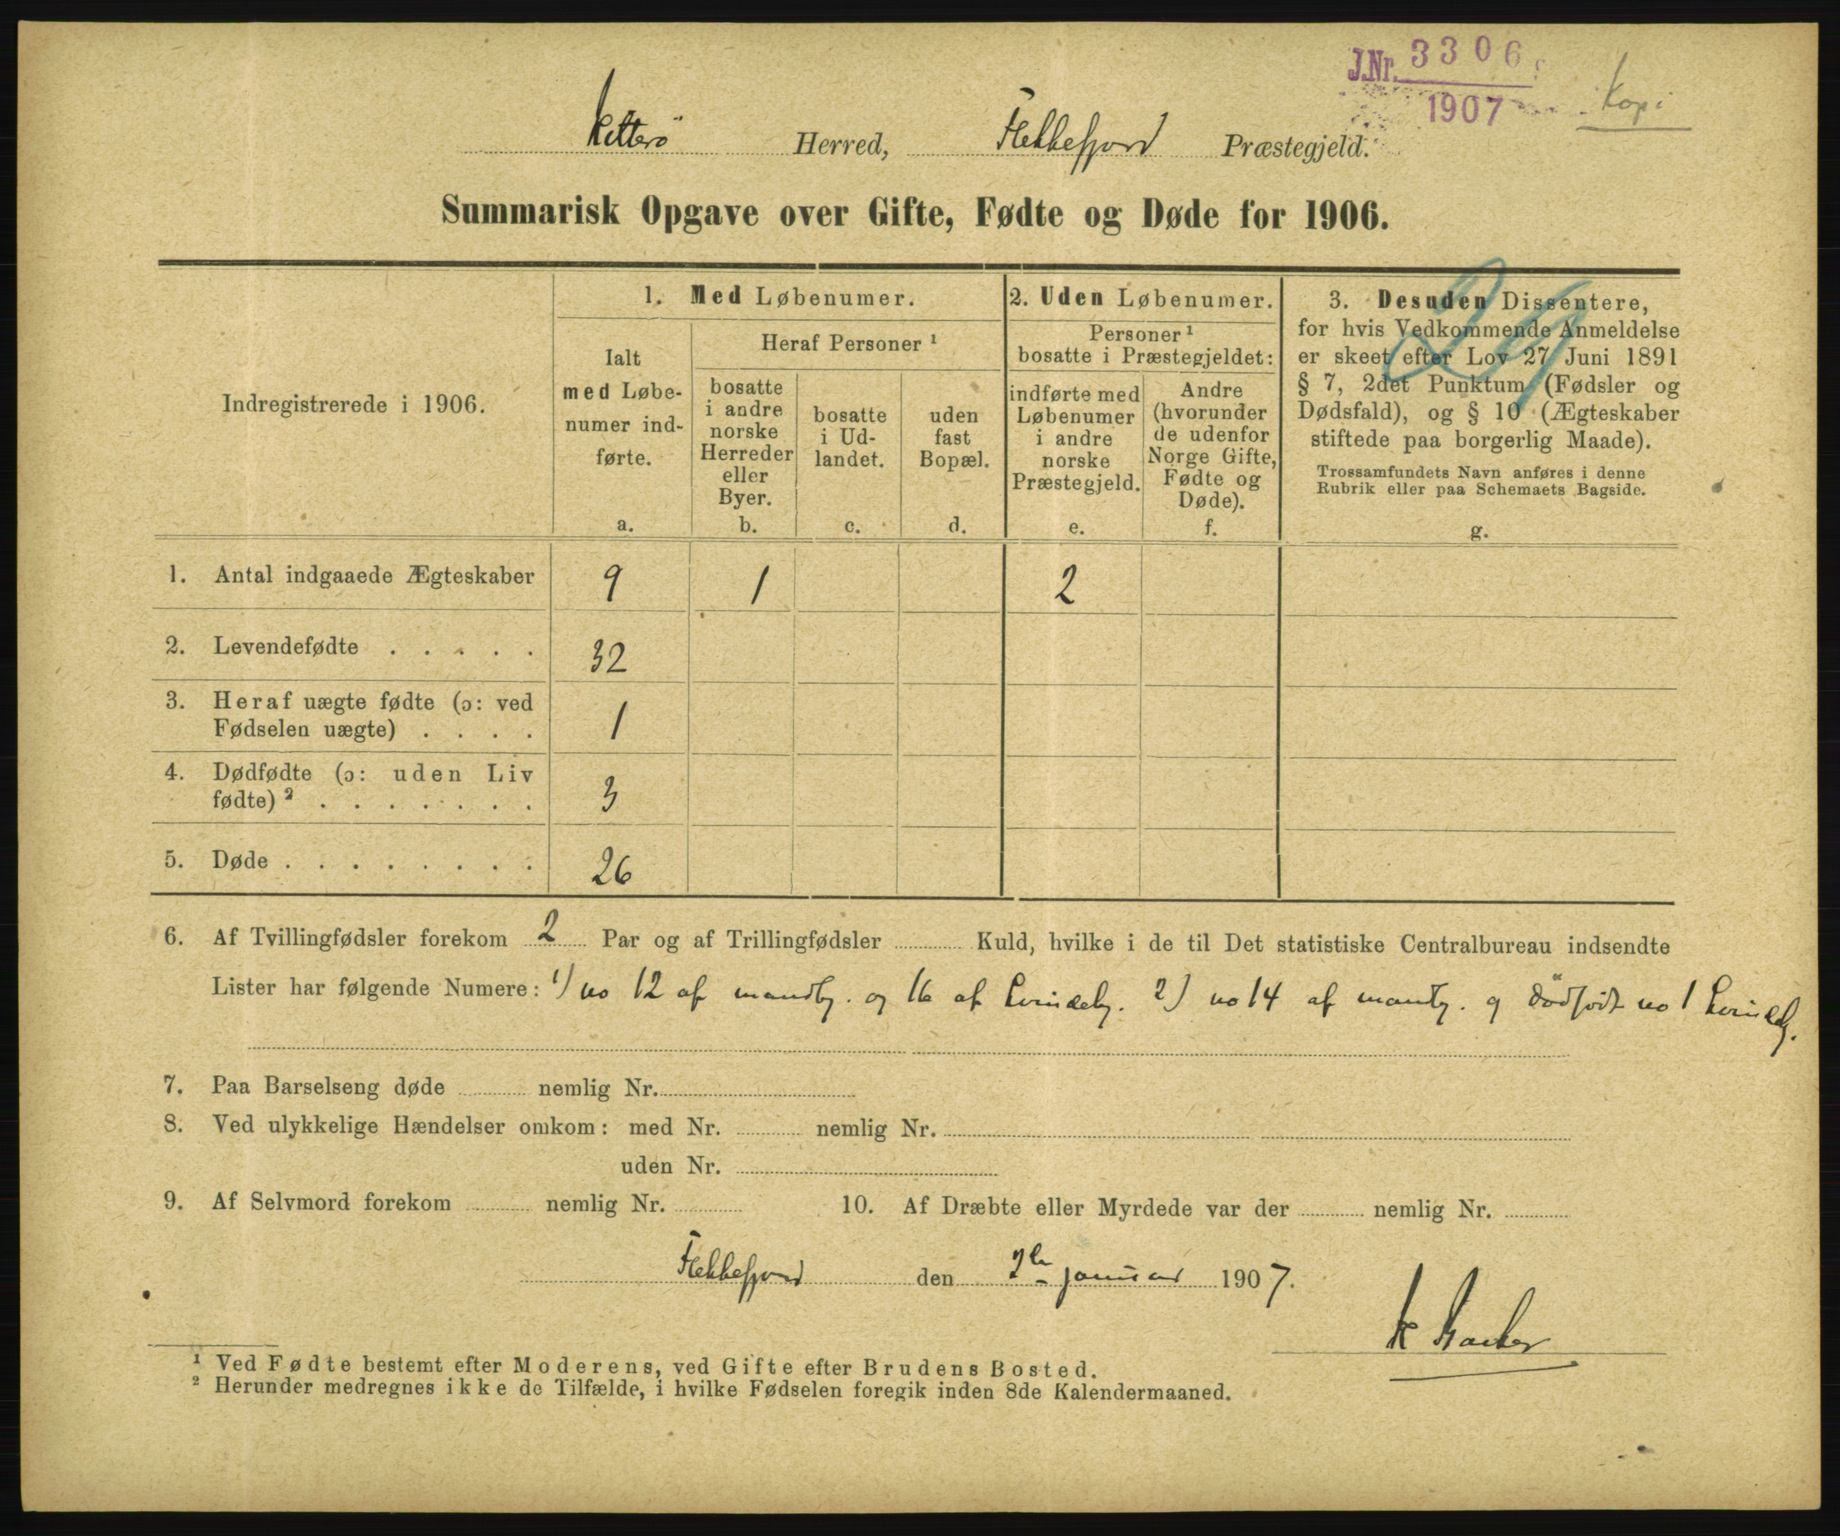 J.Nr. 3306
1907
Kopi
Hitterö Herred, Flekkefjord Præstegjeld.
Summarisk Opgave over Gifte, Fødte og Døde for 1906.
29
Indregistrerede i 1906.
1. Med Løbenumer.
Ialt
med Løbe-
numer ind-
førte.
a.
Heraf Personer ¹
bosatte
i andre
norske
Herreder
eller
Byer.
b.
bosatte
i Ud-
landet.
c.
uden
fast
Bopæl.
d.
2. Uden Løbenumer.
Personer ¹
bosatte i Præstegjeldet:
indførte med
Løbenumer
i andre
norske
Præstegjeld.
e.
Andre
(hvorunder
de udenfor
Norge Gifte,
Fødte og
Døde).
f.
3. Desuden Dissentere,
for hvis Vedkommende Anmeldelse
er skeet efter Lov 27 Juni 1891
§ 7, 2det Punktum (Fødsler og
Dødsfald), og § 10 (Ægteskaber
stiftede paa borgerlig Maade).
Trossamfundets Navn anføres i denne
Rubrik eller paa Schemaets Bagside.
g.
1. Antal indgaaede Ægteskaber 9 1 2
2. Levendefødte . . . . . 32
3. Heraf uægte fødte (ɔ: ved
Fødselen uægte) . . . . 1
4. Dødfødte (ɔ: uden Liv
fødte) ² . . . . . . . 3
5. Døde . . . . . . . . 26
6. Af Tvillingfødsler forekom 2 Par og af Trillingfødsler Kuld, hvilke i de til Det statistiske Centralbureau indsendte
Lister har følgende Numere: 1) no 12 af mandkj. og 16 af kvindekj. 2) no 14 af mandkj. og dödfödt no 1 kvindekj.
7. Paa Barselseng døde nemlig Nr.
8. Ved ulykkelige Hændelser omkom: med Nr. nemlig Nr.
uden Nr.
9. Af Selvmord forekom nemlig Nr. 10. Af Dræbte eller Myrdede var der nemlig Nr.
Flekkefjord den januar 1907.
¹ Ved Fødte bestemt efter Moderens, ved Gifte efter Brudens Bosted.
² Herunder medregnes ikke de Tilfælde, i hvilke Fødselen foregik inden 8de Kalendermaaned.